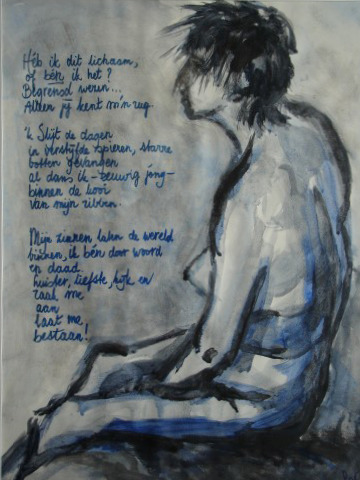 Héb ik dit lichaam,
of bén ik het?
Begrensd weren...
Alleen jij kent m'n rug.
'k Slijt de dagen
in verstijfde spieren, starre
botten gevangen
al dans ik - eeuwig jong -
binnen de kooi
van mijn ribben.
Mijn zinnen laten de wereld
binnen, ik bén door woord
en daad.
luister, liefste, kijk en
raak me
aan
laat me
bestaan!